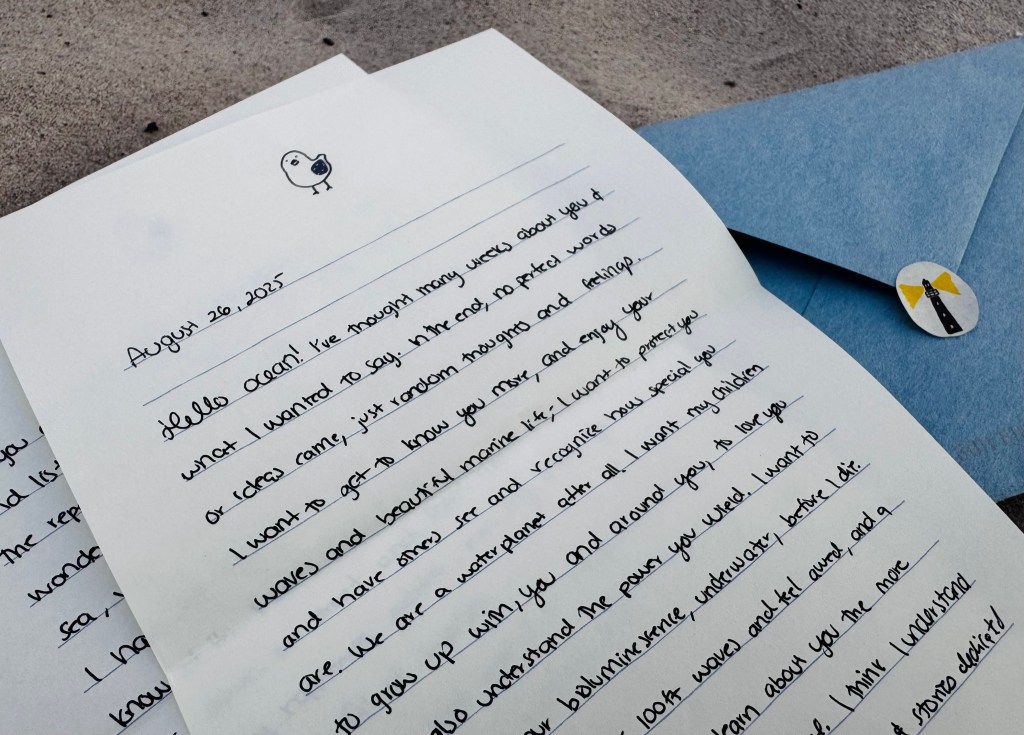 August 26, 2025
Hello ocean! I've thought many weeks about you &
what I wanted to say. In the end, no perfect words
or ideas came, just random thoughts and feelings.
I want to get to know you more, and enjoy your
waves and beautiful marine life; I want to protect you
and have others see and recognize how special you
are. We are a water planet after all. I want my children
to grow up with, you and around you, to love you
also understand the power you wield. I want to
bioluminessence, underwater, before I die.
100ft waves and feel awed, and a
learn about you the more
I think I understand
stories dedicated
you
The
wonde
sea,
I ha
know